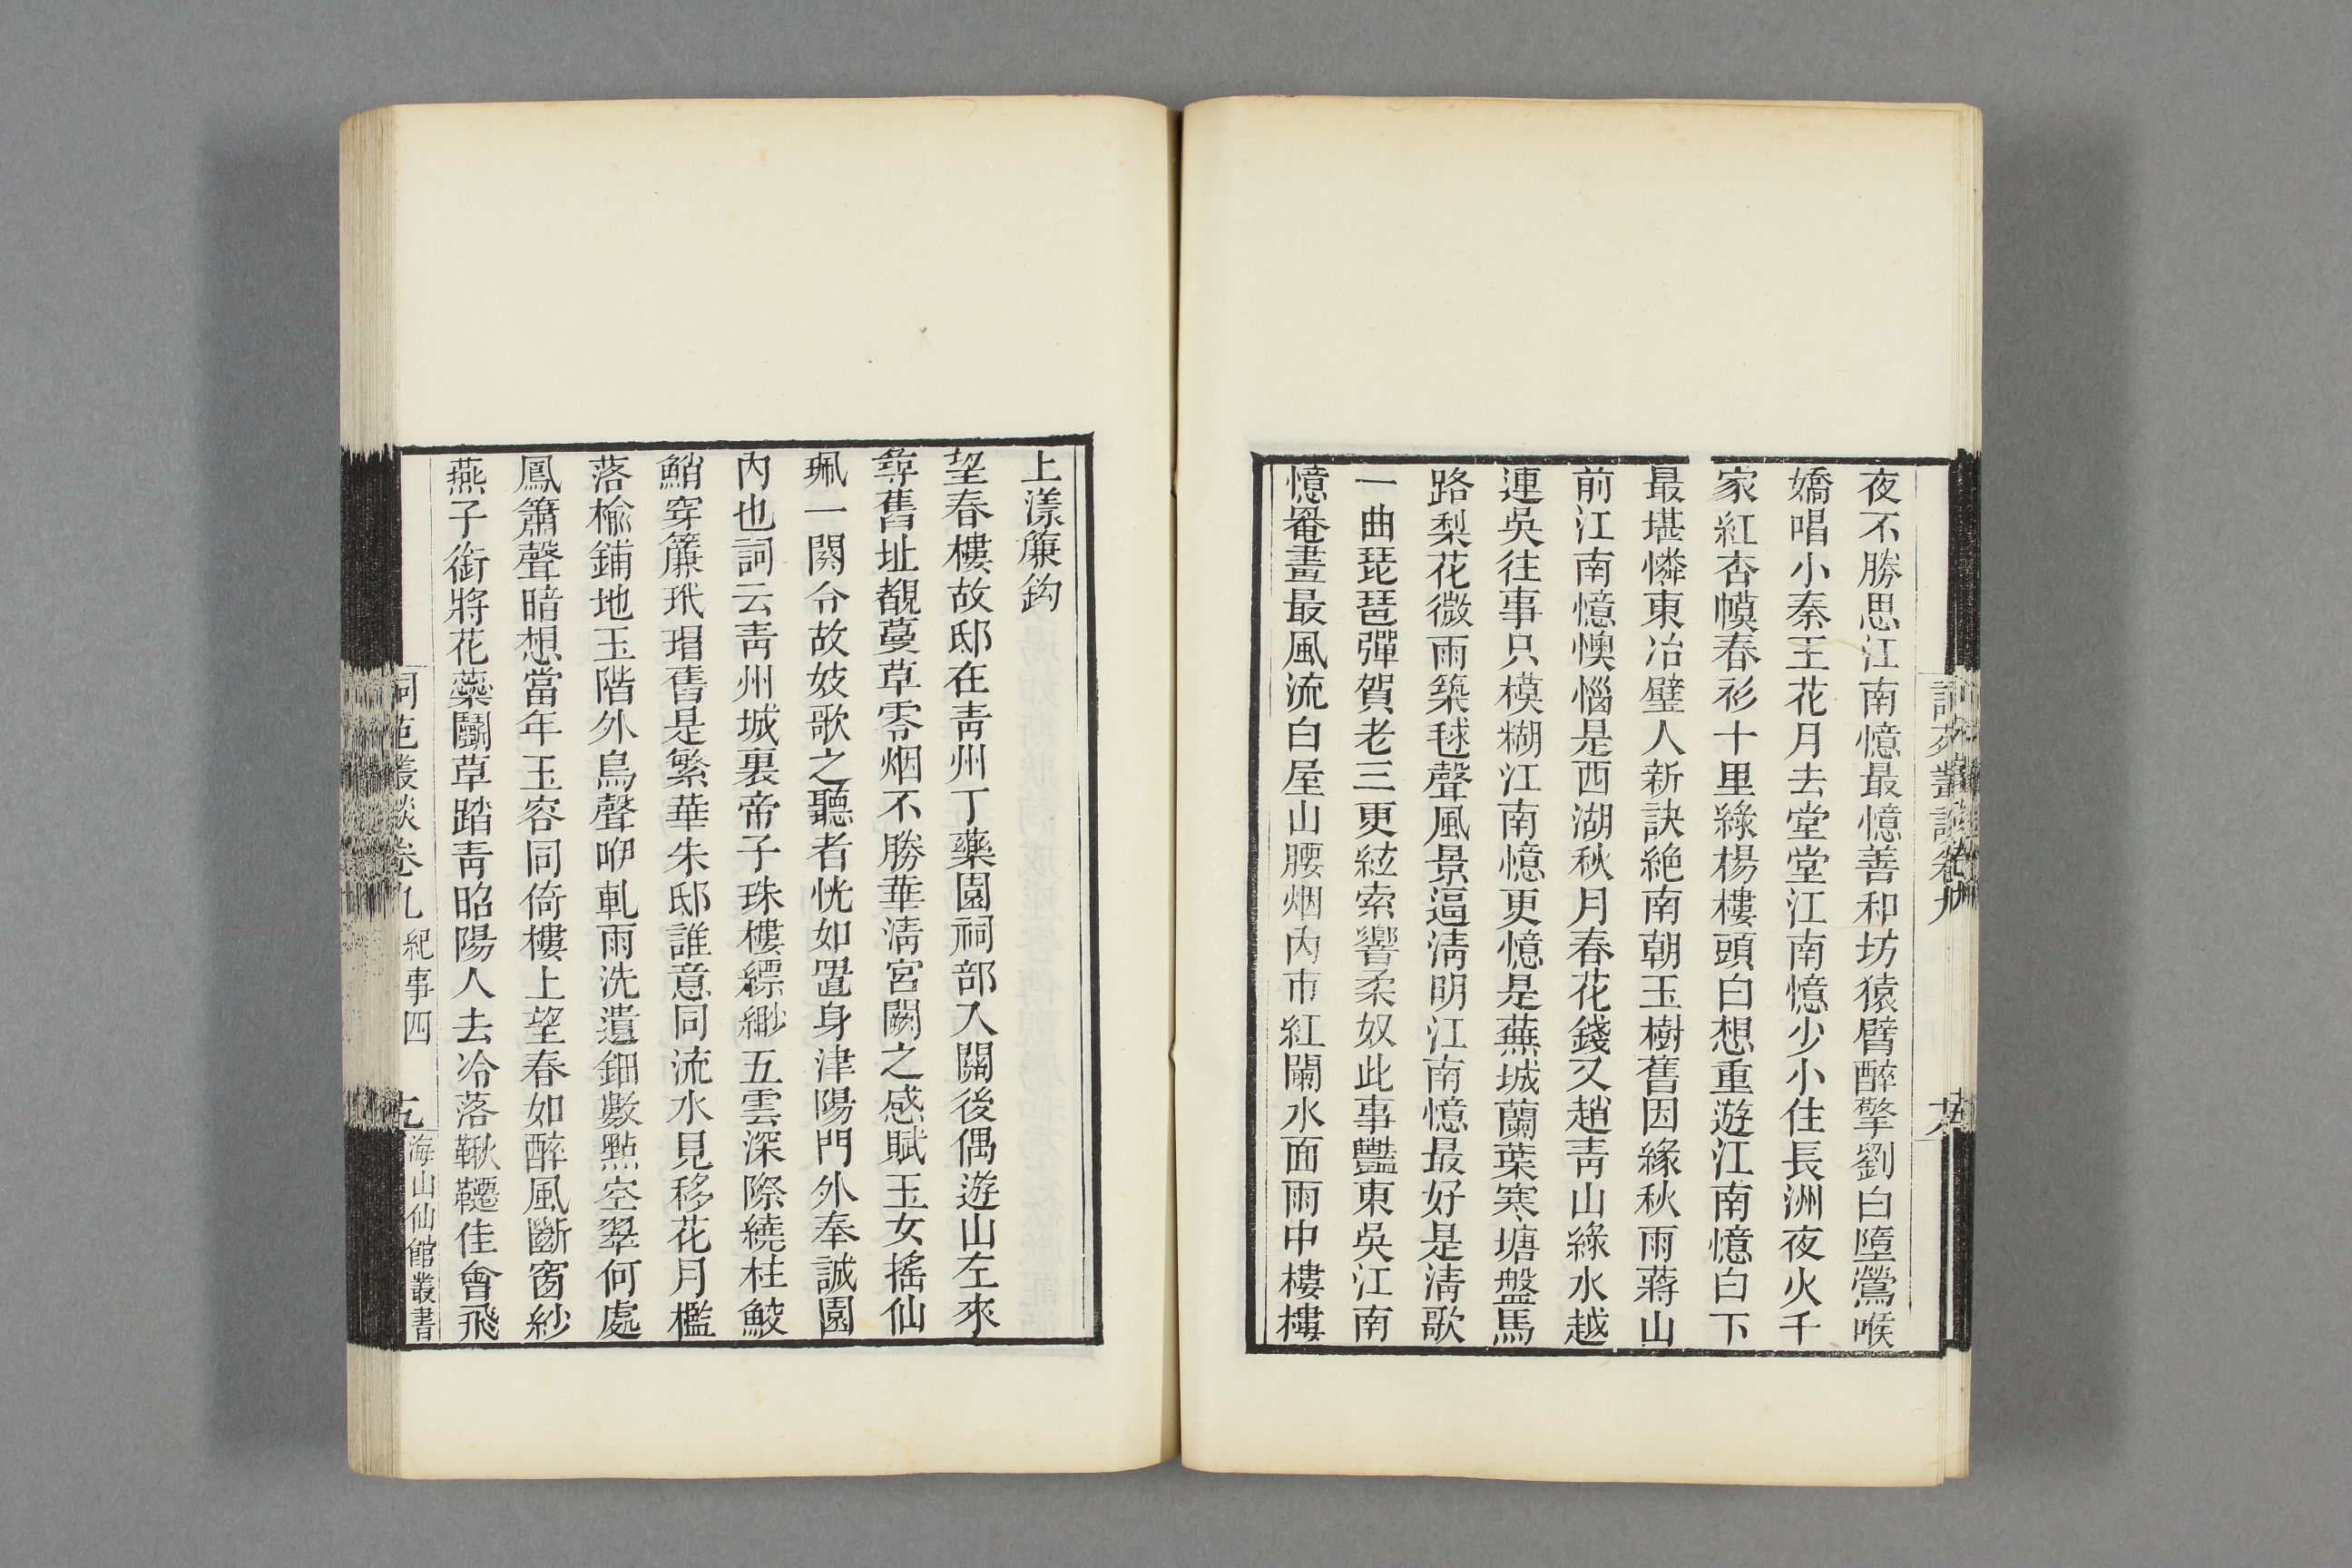 夜不勝思江南憶最憶善和坊猿臂醉擎劉白墮鶯喉
嬌唱小秦王花月去堂堂江南憶少小住長洲夜火千
家紅杏幙春衫十里綠楊樓頭白想重遊江南憶白下
最堪憐東冶璧人新訣絶南朝玉樹舊因緣秋雨蔣山
前江南憶懊惱是西湖秋月春花錢又趙靑山綠水越
連吳往事只模糊江南憶更憶是蕪城蘭葉寒塘盤馬
路梨花微雨築毬聲風景逼淸明江南憶最好是淸歌
一曲琵琶彈賀老三更絃索響柔奴此事豔東吳江南
憶罨畫最風流白屋山腰烟內市紅闌水面雨中樓樓
上漾簾鈎
望春樓故邸在靑州丁藥園祠部入關後偶遊山左來
尋舊址覩蔓草零烟不勝華淸宮闕之感賦玉女搖仙
珮一闋令故妓歌之聽者恍如置身津陽門外奉誠園
內也詞云靑州城裏帝子珠樓縹緲五雲深際繞柱鮫
鮹穿簾玳瑁舊是繁華朱邸誰意同流水見移花月檻
落榆鋪地玉階外鳥聲咿軋雨洗遺鈿數點空翠何處
鳳簫聲暗想當年玉容同倚樓上望春如醉風斷窗紗
燕子銜將花藥鬭草踏靑昭陽人去冷落鞦韆佳會飛
詞苑叢談卷九 紀事四 海山仙館叢書